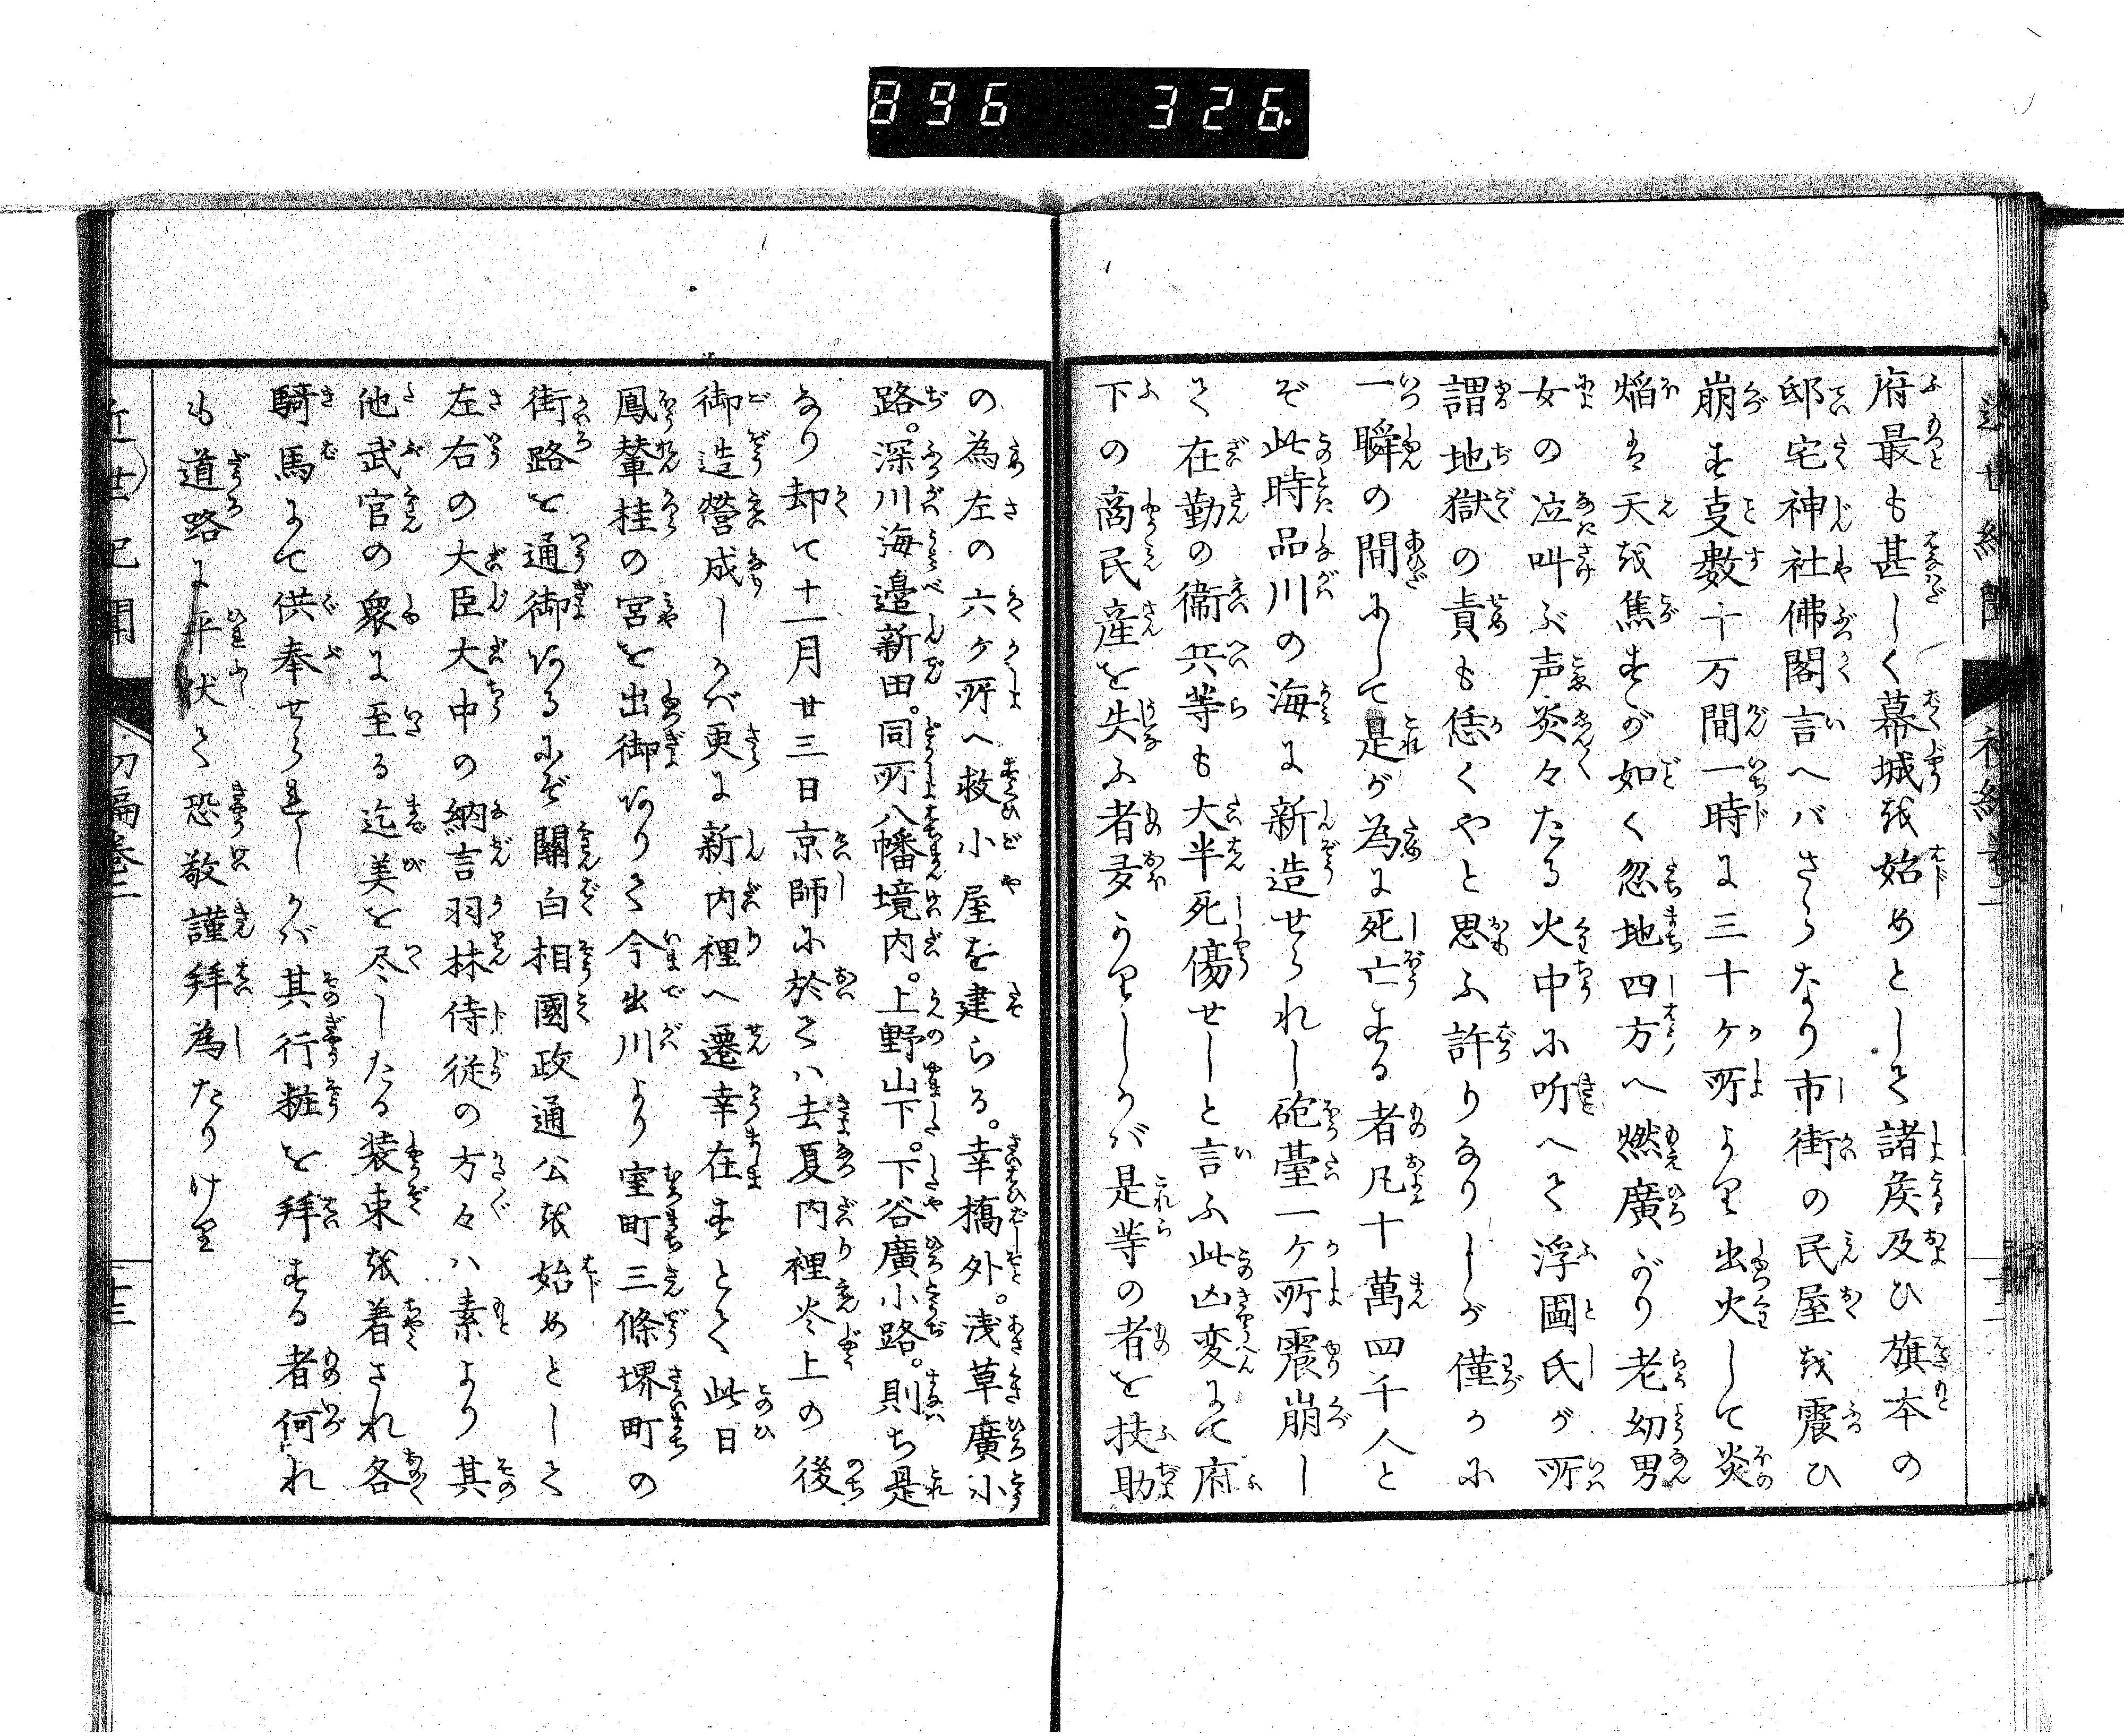 896 326.
府最も甚しく幕城を始めとして諸矦及ひ旗本の
邸宅神社佛閣言へバさらなり市街の民屋を震ひ
崩す叓數十万間一時に三十ケ所より出火して炎
焔は天を焦すが如く忽地四方へ燃廣がり老幼男
女の泣叫ぶ声炎々たる火中に听へて浮圖氏が所
謂地獄の責も恁くやと思ふ許りなりしが僅かに
一瞬の間にして是が為に死亡する者凡十萬四千人と
ぞ此時品川の海に新造せられし砲臺一ケ所震崩し
て在勤の衞兵等も大半死傷せしと言ふ此凶変にて府
下の商民産を失ふ者多かりしかば是等の者を扶助
の為左の六ケ所へ救小屋を建らる。幸橋外。浅草廣小
路。深川海邉新田。同所八幡境内。上野山下。下谷廣小路。則ち是
なり却て十一月廿三日京師に於てハ去夏内裡炎上の後
御造營成しかば更に新内裡へ遷幸在すとて此日
鳳輦桂の宮を出御ありて今出川より室町三條堺町の
街路を通御あるにぞ關白相國政通公を始めとして
左右の大臣大中の納言羽林侍従の方々ハ素より其
他武官の衆に至る迄美を尽したる装束を着され各
騎馬にて供奉せられしかば其行粧を拜する者何れ
も道路に平伏て恐敬謹拜為たりけり
近世紀聞 初編巻二 十三